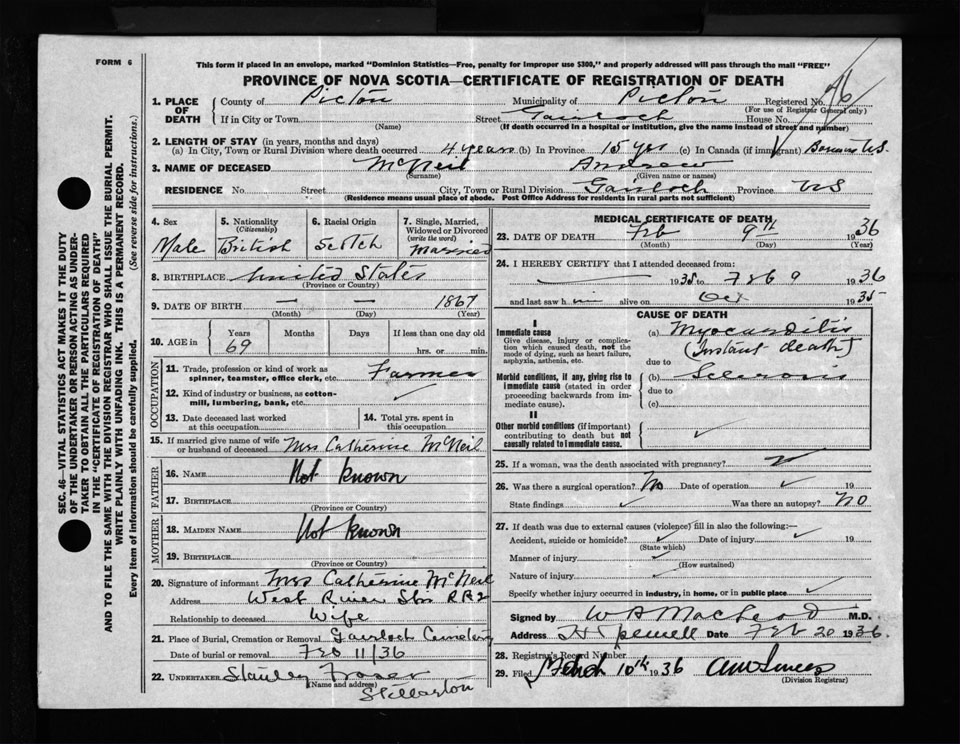 FORM 6
This form if placed in an envelope, marked "Dominion Statistics—Free, penalty for improper use $300," and properly addressed will pass through the mail "FREE"
PROVINCE OF NOVA SCOTIA—CERTIFICATE OF REGISTRATION OF DEATH
SEC. 46—VITAL STATISTICS ACT MAKES IT THE DUTY
OF THE UNDERTAKER OR PERSON ACTING AS UNDER-
TAKER TO OBTAIN ALL THE PARTICULARS REQUIRED
IN THE "CERTIFICATE OF REGISTRATION OF DEATH"
AND TO FILE THE SAME WITH THE DIVISION REGISTRAR WHO SHALL ISSUE THE BURIAL PERMIT.
WRITE PLAINLY WITH UNFADING INK. THIS IS A PERMANENT RECORD.
Every item of information should be carefully supplied. (See reverse side for instructions.)
1. PLACE OF DEATH County of Pictou Municipality of Pictou Registered No. 76
(For use of Registrar General only)
If in City or Town Street Gairloch House No.
(Name) (If death occurred in a hospital or institution, give the name instead of street and number)
2. LENGTH OF STAY (in years, months and days)
(a) In City, Town or Rural Division where death occurred 4 years (b) In Province 15 yrs (c) In Canada (if immigrant)
3. NAME OF DECEASED McNeil Andrew
(Surname) (Given name or names)
RESIDENCE No. Street City, Town or Rural Division Gairloch Province NS
(Residence means usual place of abode. Post Office Address for residents in rural parts not sufficient)
4. Sex Male
5. Nationality (Citizenship) British
6. Racial Origin Scotch
7. Single, Married, Widowed or Divorced (write the word) Married
8. BIRTHPLACE United States
(Province or Country)
9. DATE OF BIRTH — — 1867
(Month) (Day) (Year)
10. AGE in Years Months Days If less than one day old
69 hrs. or min.
OCCUPATION
11. Trade, profession or kind of work as spinner, teamster, office clerk, etc. Farmer
12. Kind of industry or business, as cotton-mill, lumbering, bank, etc. ✓
13. Date deceased last worked at this occupation
14. Total yrs. spent in this occupation
15. If married give name of wife or husband of deceased Mrs Catherine McNeil
FATHER
16. NAME Not known
17. BIRTHPLACE
(Province or Country)
MOTHER
18. MAIDEN NAME Not known
19. BIRTHPLACE
(Province or Country)
20. Signature of informant Mrs Catherine McNeil
Address West River Stn RR2
Relationship to deceased Wife
21. Place of Burial, Cremation or Removal Gairloch Cemetery
Date of burial or removal Feb 11/36
22. UNDERTAKER Stanley Fraser
(Name and address)
Stellarton
MEDICAL CERTIFICATE OF DEATH
23. DATE OF DEATH Feb 9th 1936
(Month) (Day) (Year)
24. I HEREBY CERTIFY that I attended deceased from:
— 1935 to Feb 9 1936
and last saw him alive on Oct 1935
CAUSE OF DEATH
I
Immediate cause
Give disease, injury or complication which caused death, not the mode of dying, such as heart failure, asphyxia, asthenia, etc.
(a) Myocarditis
(Instant death)
due to
Morbid conditions, if any, giving rise to immediate cause (stated in order proceeding backwards from immediate cause).
(b) Sclerosis
due to
(c)
II
Other morbid conditions (if important) contributing to death but not causally related to immediate cause. ✓
25. If a woman, was the death associated with pregnancy?
26. Was there a surgical operation? No Date of operation ✓ 19
State findings ✓ Was there an autopsy? NO
27. If death was due to external causes (violence) fill in also the following:—
Accident, suicide or homicide? ✓ Date of injury ✓ 19
(State which)
Manner of injury ✓
(How sustained)
Nature of injury ✓
Specify whether injury occurred in industry, in home, or in public place ✓
Signed by W A MacLeod M.D.
Address Hopewell Date Feb 20 1936.
28. Registrar's Record Number
29. Filed 10th 1936
(Division Registrar)